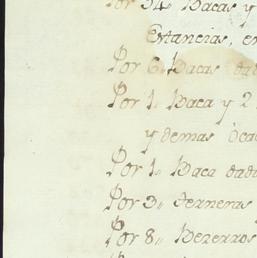 Por 54,, Bacas y
Estancias, en
Por 6,, Bacas dad
Por 1,, Baca y 2
y demas ôca
Por 1,, Baca dada
Por 3,, terneras
Por 8,, Bezerros